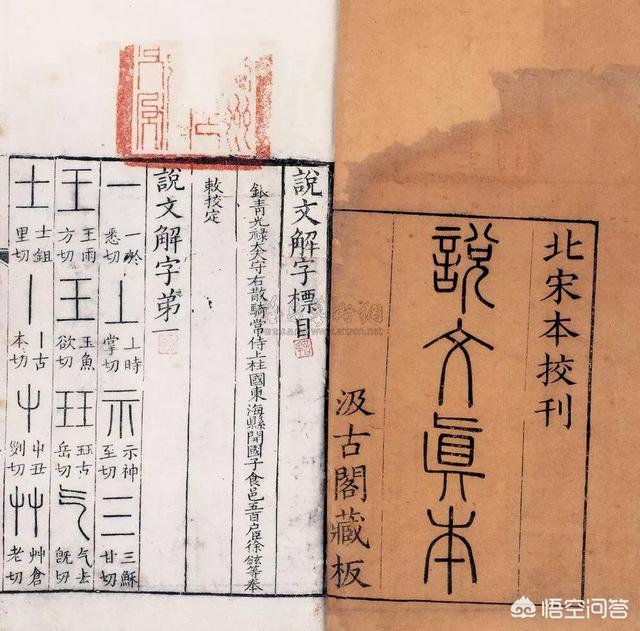 北宋本挍刊
說文眞本
汲古閣藏板
說文解字標目
銀青光祿大夫守右散騎常侍上柱國東海縣開國子食邑五百户臣徐鉉等奉
敕挍定
說文解字第一
一 一於悉切 丄 丄時掌切 示 示神至切 三 三穌甘切
王 王雨方切 玉 玉魚欲切 玨 玨古岳切 气 气去旣切
士 士鉏里切 丨 丨古本切 屮 屮丑列切 艸 艸倉老切
悟空问答